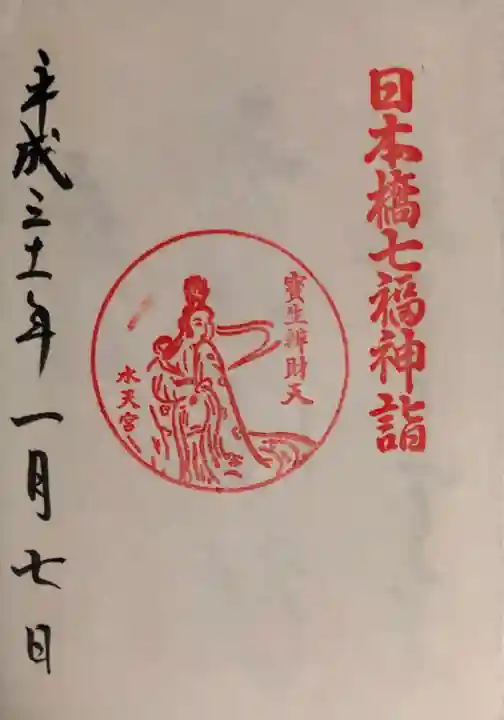 日本橋七福神詣
寳生辨財天
水天宮
平成三十一年一月七日